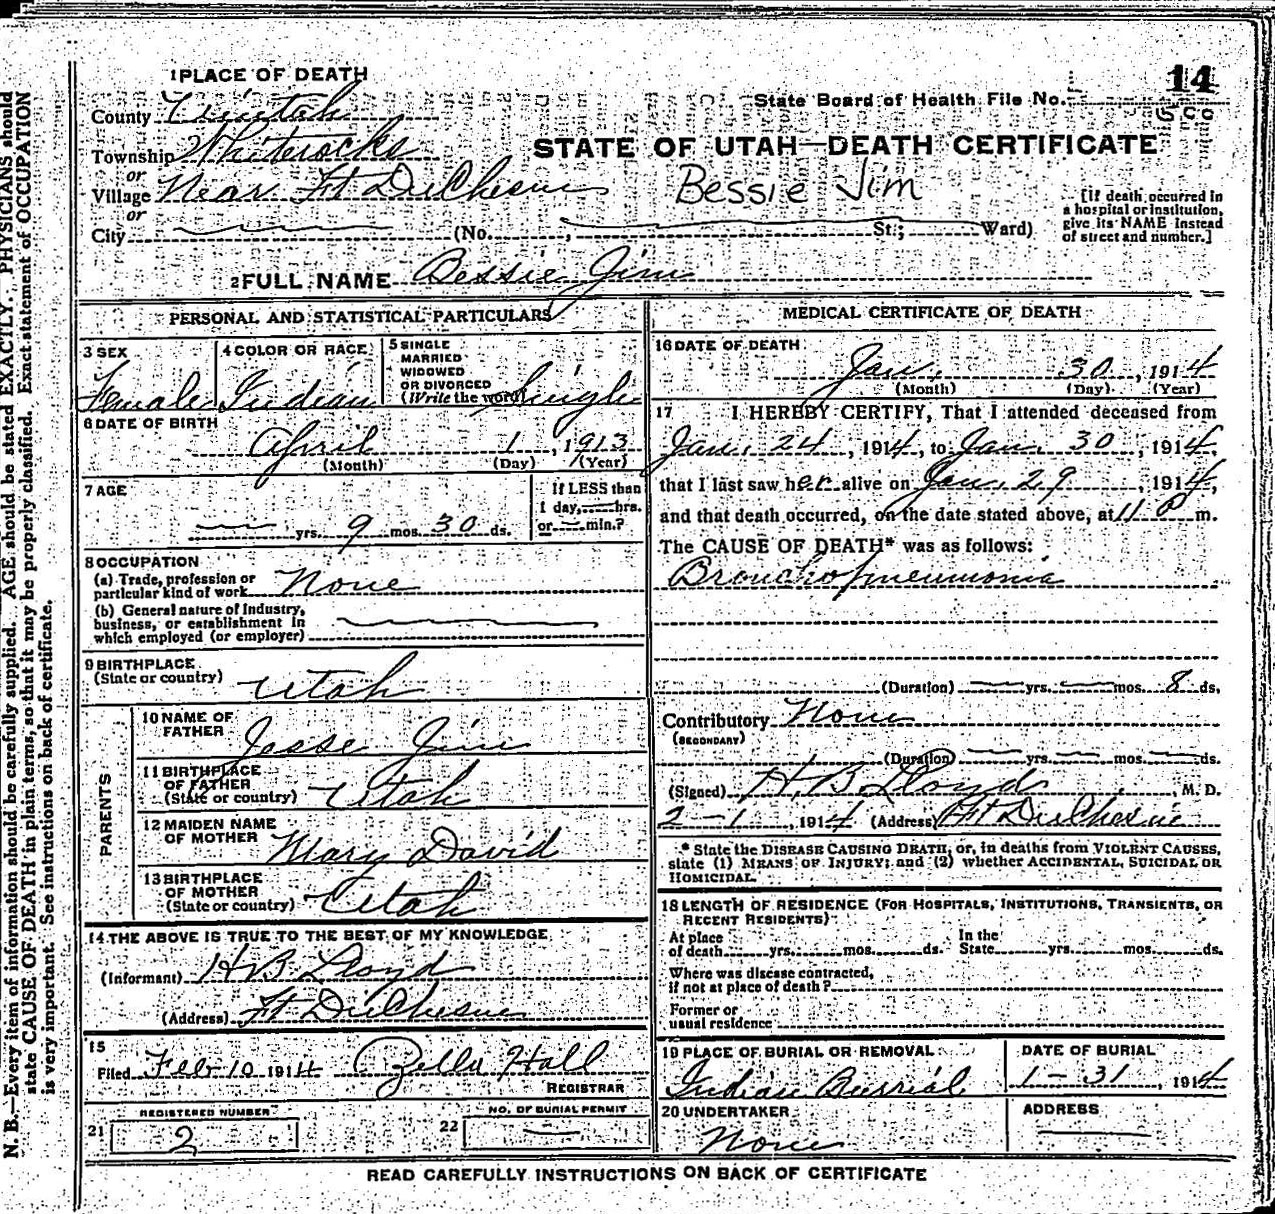 1 PLACE OF DEATH
14
County Uintah
State Board of Health File No.
Township Whiterocks
STATE OF UTAH—DEATH CERTIFICATE
or
Village Near Ft DuChesne
Bessie Jim
or
City (No. , St.; Ward)
[If death occurred in
a hospital or institution,
give its NAME instead
of street and number.]
2 FULL NAME Bessie Jim
PERSONAL AND STATISTICAL PARTICULARS
3 SEX
Female
4 COLOR OR RACE
Indian
5 SINGLE
MARRIED
WIDOWED
OR DIVORCED
(Write the word) Single
6 DATE OF BIRTH
April 1, 1913
(Month) (Day) (Year)
7 AGE
yrs. 9 mos. 30 ds.
If LESS than
1 day, hrs.
or min.?
8 OCCUPATION
(a) Trade, profession or
particular kind of work None
(b) General nature of Industry,
business, or establishment in
which employed (or employer)
9 BIRTHPLACE
(State or country) Utah
PARENTS
10 NAME OF
FATHER Jesse Jim
11 BIRTHPLACE
OF FATHER
(State or country) Utah
12 MAIDEN NAME
OF MOTHER Mary David
13 BIRTHPLACE
OF MOTHER
(State or country) Utah
14 THE ABOVE IS TRUE TO THE BEST OF MY KNOWLEDGE
(Informant) H B Lloyd
(Address) Ft DuChesne
15
Filed Feb 10 1914 Zella Hall
REGISTRAR
REGISTERED NUMBER
21 2
NO. OF BURIAL PERMIT
22
MEDICAL CERTIFICATE OF DEATH
16 DATE OF DEATH
Jan. 30, 1914
(Month) (Day) (Year)
17 I HEREBY CERTIFY, That I attended deceased from
Jan. 24, 1914, to Jan. 30, 1914,
that I last saw her alive on Jan. 29, 1914,
and that death occurred, on the date stated above, at 11 P m.
The CAUSE OF DEATH* was as follows:
Bronchopneumonia
(Duration) yrs. mos. 8 ds.
Contributory None
(SECONDARY)
(Duration) yrs. mos. ds.
(Signed) H. B Lloyd, M. D.
2-1, 1914 (Address) Ft DuChesne
* State the DISEASE CAUSING DEATH, or, in deaths from VIOLENT CAUSES,
state (1) MEANS OF INJURY; and (2) whether ACCIDENTAL, SUICIDAL OR
HOMICIDAL.
18 LENGTH OF RESIDENCE (FOR HOSPITALS, INSTITUTIONS, TRANSIENTS, OR
RECENT RESIDENTS)
At place
of death yrs. mos. ds.
In the
State yrs. mos. ds.
Where was disease contracted,
if not at place of death?
Former or
usual residence
19 PLACE OF BURIAL OR REMOVAL
Indian Burrial
DATE OF BURIAL
1-31, 1914
20 UNDERTAKER
None
ADDRESS
READ CAREFULLY INSTRUCTIONS ON BACK OF CERTIFICATE
N. B.—Every item of information should be carefully supplied. AGE should be stated EXACTLY. PHYSICIANS should
state CAUSE OF DEATH in plain terms, so that it may be properly classified. Exact statement of OCCUPATION
is very important. See instructions on back of certificate.